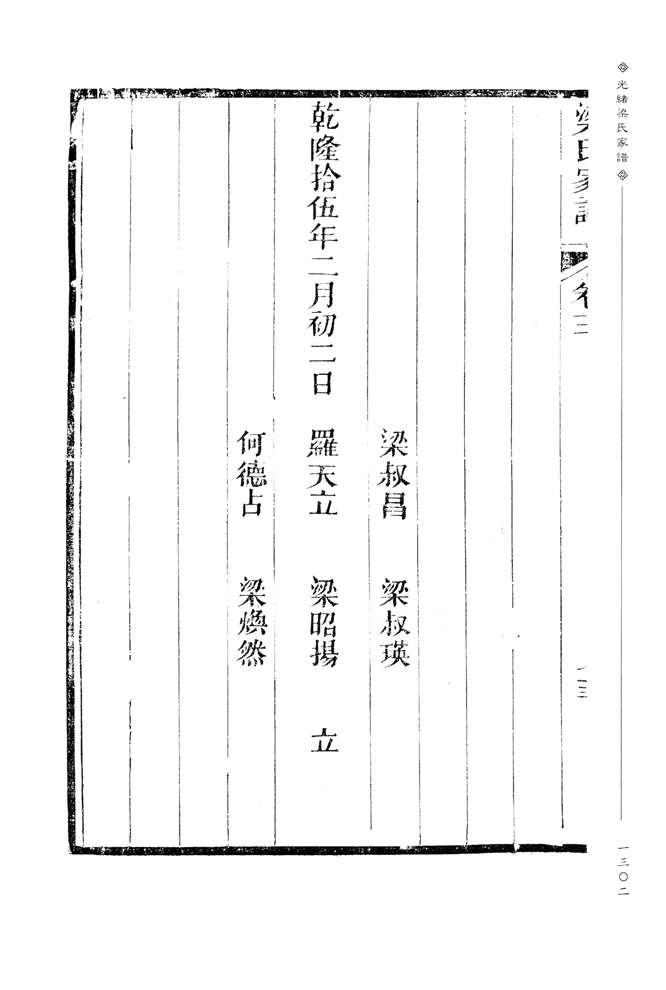 光緒梁氏家譜
一三〇二
梁氏家譜 卷三
梁叔昌 梁叔瑛
乾隆拾伍年二月初二日 羅天立 梁昭揚 立
何德占 梁煥然